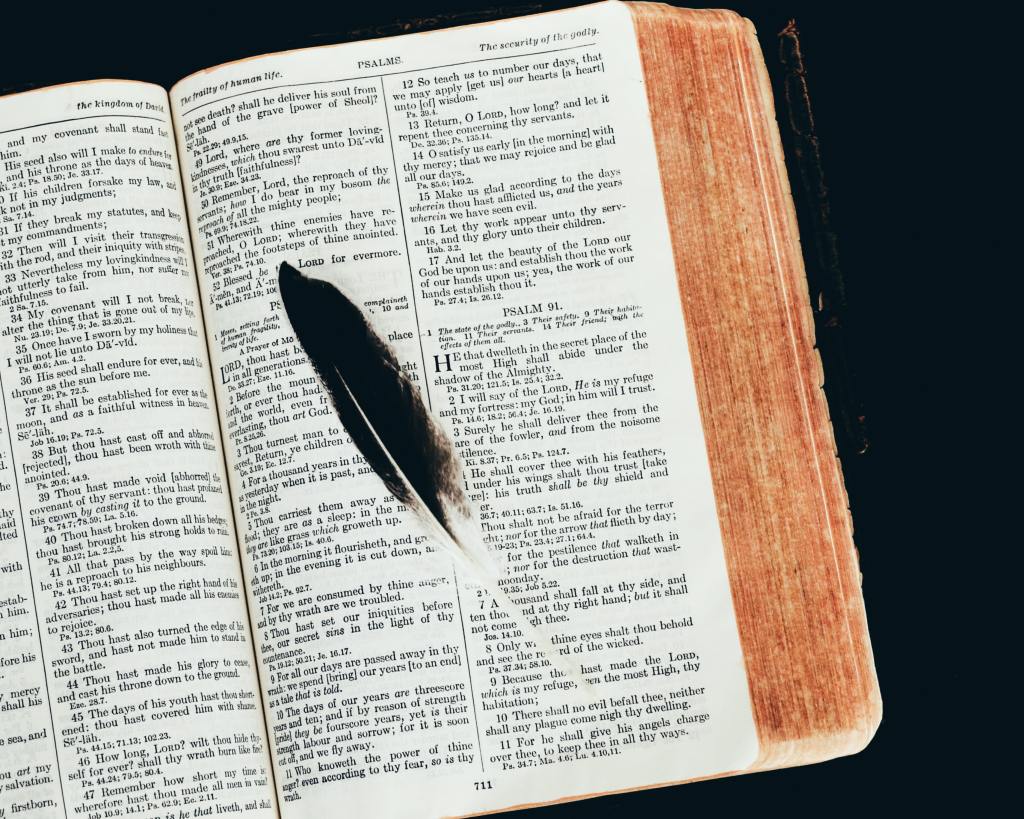 the kingdom of David.
and my covenant shall stand fast
him.
His seed also will I make to endure for
and his throne as the days of heaven.
Ki. 2.4; Ps. 18.50; Je. 33.17.
If his children forsake my law, and
not in my judgments;
Sa. 7.14.
31 If they break my statutes, and keep
my commandments;
32 Then will I visit their transgression
with the rod, and their iniquity with stripes.
33 Nevertheless my lovingkindness will
not utterly take from him, nor suffer my
faithfulness to fail.
2 Sa. 7.15.
34 My covenant will I not break, nor
alter the thing that is gone out of my lips.
Nu. 23.19; De. 7.9; Je. 33.20,21.
35 Once have I sworn by my holiness that
I will not lie unto Dā′-vid.
Ps. 60.6; Am. 4.2.
36 His seed shall endure for ever, and his
throne as the sun before me.
Ver. 29; Ps. 72.5.
37 It shall be established for ever as the
moon, and as a faithful witness in heaven.
Sē′-läh.
Job 16.19; Ps. 72.5.
38 But thou hast cast off and abhorred
[rejected], thou hast been wroth with thine
anointed.
Ps. 20.6; 44.9.
39 Thou hast made void [abhorred] the
covenant of thy servant: thou hast profaned
his crown by casting it to the ground.
Ps. 74.7; 78.59; La. 5.16.
40 Thou hast broken down all his hedges;
thou hast brought his strong holds to ruin.
Ps. 80.12; La. 2.2,5.
41 All that pass by the way spoil him:
he is a reproach to his neighbours.
Ps. 44.13; 79.4; 80.12.
42 Thou hast set up the right hand of his
adversaries; thou hast made all his enemies
to rejoice.
Ps. 13.2; 80.6.
43 Thou hast also turned the edge of his
sword, and hast not made him to stand in
the battle.
44 Thou hast made his glory to cease,
and cast his throne down to the ground.
Eze. 28.7.
45 The days of his youth hast thou short-
ened: thou hast covered him with shame.
Sē′-läh.
Ps. 44.15; 71.13; 102.23.
46 How long, LORD? wilt thou hide thy-
self for ever? shall thy wrath burn like fire?
Ps. 44.24; 79.5; 80.4.
47 Remember how short my time is:
wherefore hast thou made all men in vain?
Job 10.9; 14.1; Ps. 62.9; Ec. 2.11.
is he that liveth, and shall
The frailty of human life.
PSALMS.
The security of the godly.
not see death? shall he deliver his soul from
the hand of the grave [power of Sheol]?
Sē′-läh.
Ps. 22.29; 49.9,15.
49 Lord, where are thy former loving-
kindnesses, which thou swarest unto Dā′-vid
in thy truth [faithfulness]?
50 Remember, Lord, the reproach of thy
servants; how I do bear in my bosom the
reproach of all the mighty people;
Ps. 69.9; 74.18,22.
51 Wherewith thine enemies have re-
proached, O LORD; wherewith they have
reproached the footsteps of thine anointed.
52 Blessed be LORD for evermore.
Ā′-mĕn, and Ā′-m
Ps. 41.13; 72.19; 106
PS
complaineth
10 and
A Prayer of Mō
LORD, thou hast b place
in all generations.
De. 33.27; Eze. 11.16.
2 Before the moun
forth, or ever thou had
and the world, even fr
everlasting, thou art God.
Pr. 8.25,26.
3 Thou turnest man to
sayest, Return, ye children o
Ge. 3.19; Ec. 12.7.
4 For a thousand years in thy
as yesterday when it is past, and
in the night.
2 Pe. 3.8.
5 Thou carriest them away as
flood; they are as a sleep: in the m
they are like grass which groweth up.
Ps. 73.20; 103.15; Is. 40.6.
6 In the morning it flourisheth, and gr
eth up; in the evening it is cut down, an
withereth.
Job 14.2; Ps. 92.7.
7 For we are consumed by thine anger,
and by thy wrath are we troubled.
8 Thou hast set our iniquities before
thee, our secret sins in the light of thy
countenance.
Ps. 19.12; 50.21; Je. 16.17.
9 For all our days are passed away in thy
wrath: we spend [bring] our years [to an end]
as a tale that is told.
10 The days of our years are threescore
years and ten; and if by reason of strength
[pride] they be fourscore years, yet is their
strength labour and sorrow; for it is soon
cut off, and we fly away.
11 Who knoweth the power of thine
anger? even according to thy fear, so is thy
wrath.
12 So teach us to number our days, that
we may apply [get us] our hearts [a heart]
unto [of] wisdom.
Ps. 39.4.
13 Return, O LORD, how long? and let it
repent thee concerning thy servants.
De. 32.36; Ps. 135.14.
14 O satisfy us early [in the morning] with
thy mercy; that we may rejoice and be glad
all our days.
Ps. 85.6; 149.2.
15 Make us glad according to the days
wherein thou hast afflicted us, and the years
wherein we have seen evil.
16 Let thy work appear unto thy serv-
ants, and thy glory unto their children.
Hab. 3.2.
17 And let the beauty of the LORD our
God be upon us: and establish thou the work
of our hands upon us; yea, the work of our
hands establish thou it.
Ps. 27.4; Is. 26.12.
PSALM 91.
1 The state of the godly. 3 Their safety. 9 Their habita-
tion. 11 Their servants. 14 Their friend; with the
effects of them all.
HE that dwelleth in the secret place of the
most High shall abide under the
shadow of the Almighty.
Ps. 31.20; 121.5; Is. 25.4; 32.2.
2 I will say of the LORD, He is my refuge
and my fortress: my God; in him will I trust.
Ps. 14.6; 18.2; 56.4; Je. 16.19.
3 Surely he shall deliver thee from the
are of the fowler, and from the noisome
tilence.
Ki. 8.37; Pr. 6.5; Ps. 124.7.
He shall cover thee with his feathers,
under his wings shalt thou trust [take
ge]: his truth shall be thy shield and
er.
36.7; 40.11; 63.7; Is. 51.16.
Thou shalt not be afraid for the terror
; nor for the arrow that flieth by day;
19-23; Ps. 23.4; 27.1; 64.4.
for the pestilence that walketh in
; nor for the destruction that wast-
noonday.
19.35; Job 5.22.
7 A thousand shall fall at thy side, and
ten thou nd at thy right hand; but it shall
not come gh thee.
Jos. 14.10.
8 Only w thine eyes shalt thou behold
and see the re rd of the wicked.
Ps. 37.34; 58.10.
9 Because tho hast made the LORD,
which is my refuge, ven the most High, thy
habitation;
10 There shall no evil befall thee, neither
shall any plague come nigh thy dwelling.
11 For he shall give his angels charge
over thee, to keep thee in all thy ways.
Ps. 34.7; Ma. 4.6; Lu. 4.10,11.
711